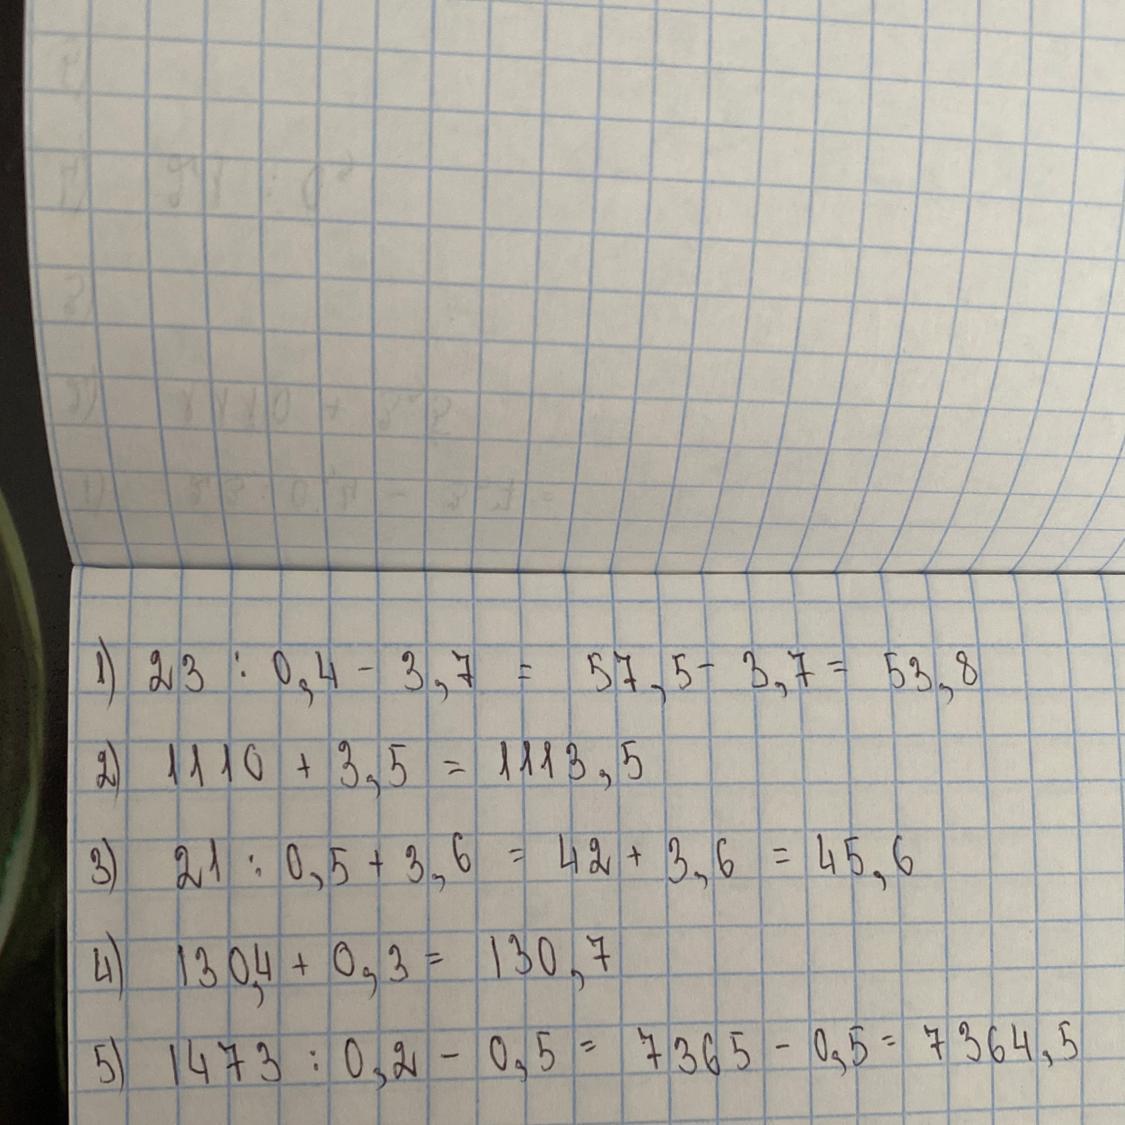 1) 23 : 0,4 - 3,7 = 57,5 - 3,7 = 53,8
2) 1110 + 3,5 = 1113,5
3) 21 : 0,5 + 3,6 = 42 + 3,6 = 45,6
4) 130,4 + 0,3 = 130,7
5) 1473 : 0,2 - 0,5 = 7365 - 0,5 = 7364,5